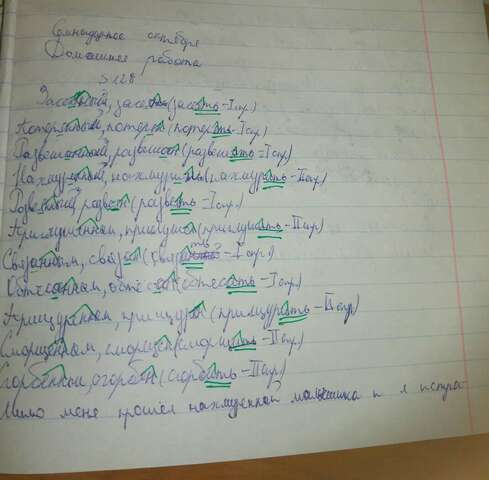 Семнадцатое октября
Домашняя работа
§ 128
Засеянный, засеян (засеять – I спр.)
Потерянный, потерян (потерять – I спр.)
Развешанный, развешан (развешать – I спр.)
Нахмуренный, нахмурен (нахмурить – II спр.)
Развеянный, развеян (развеять – I спр.)
Приглушенным, приглушен (приглушить – II спр.)
Связанным, связан (связать – I спр.)
Обтёсанным, обтёсан (обтесать – I спр.)
Прищуренном, прищурен (прищурить – II спр.)
Сморщенным, сморщен (сморщить – II спр.)
Сгорбенной, сгорбен (сгорбить – II спр.)
Мимо меня прошёл нахмуренной мальчишка и я испра-